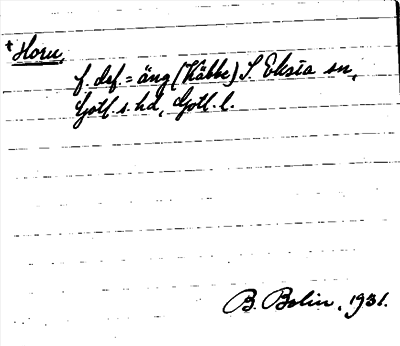 +Horu,
f. def. = äng (Käbbe) S. Eksta sn,
Gotl. s. hd, Gotl. l.
B. Bolin, 1931.